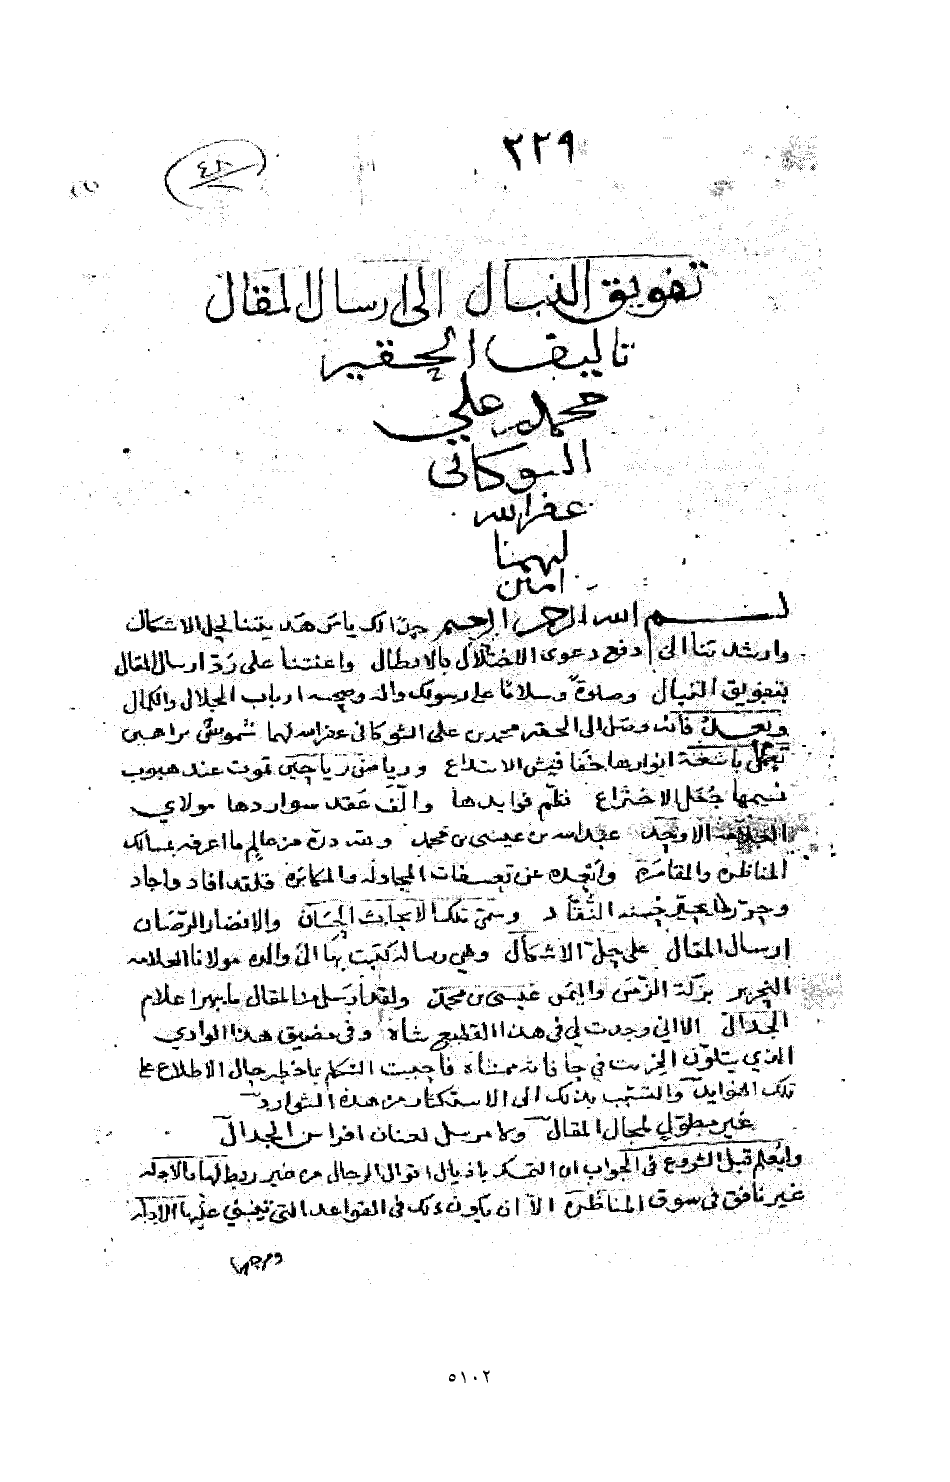 ٢٢٩
٤٨
تفويق النبال الى ارسال المقال
تاليف الحقير
محمد بن علي
الشوكاني
غفر الله
لهما
امين
بسم الله الرحمن الرحيم حمدا لك يا من هديتنا لحل الاشكال
وارشدتنا الى دفع دعوى الاختلال بالابطال واعنتنا على رد ارسال المقال
بتفويق النبال وصلوة وسلاما على رسولك واله وصحبه ارباب الجلال والكمال
وبعد فانه وصل الى الحقير محمد بن علي الشوكاني غفر الله لهما شموس براهين
باشعة انوارها خفافيش الابتداع ورياض رياحين تموت عند هبوب
نسيمها جعل الاختراع نظم فوايدها والف عقد سواردها مولاي
العلامة الاوحد عبد الله بن عيسى بن محمد ولله دره من عالم ما اعرفه بمسالك
المناظره وابعده عن تعسفات المجادله والمكابره فلقد افاد واجاد
وسمى تلك الابحاث الحسان والانضار الرصان
ارسال المقال على حل الاشكال وهي رسالة كتب بها الى والده مولانا العلامه
النحرير بركة الزمن واليمن عيسى بن محمد ولقد ارسل هذا المقال ما بهر اعلام
الجدال الا اني وجدت لي في هذا القطيع شاه وفي مضيق هذا الوادي
الذي يتلون الخريت في فاحببت التكلم باخطر حال الاطلاع على
تلك الفوايد والتسبب بذلك الى الاستكثار من هذه الشوارد
غير مطول لمجال المقال ولا مرسل لعنان افراس الجدال
وليعلم قبل الشروع في الجواب ان التمسك باذيال اقوال الرجال من غير ربط لها بالادله
غير نافق في سوق المناظره الا ان يكون ذلك في القواعد التي تبتني عليها الادله
٥١٠٢